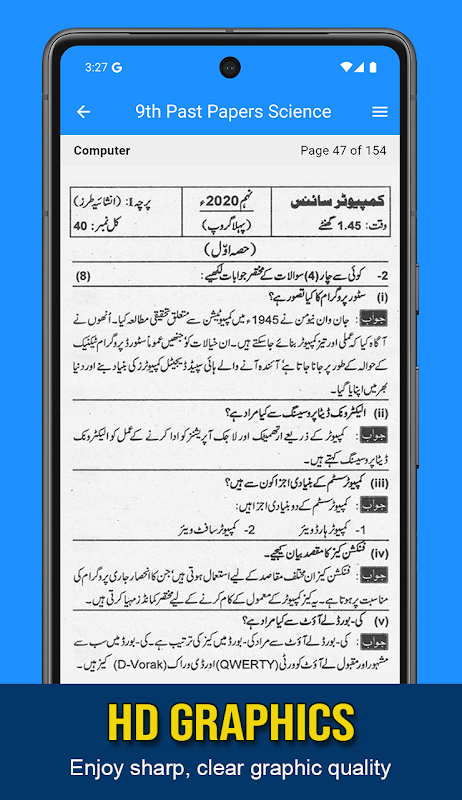 3:27 G
9th Past Papers Science
Computer
Page 47 of 154
کمپیوٹر سائنس
نہم 2020ء
پرچہ I: (انشائیہ طرز)
وقت: 1.45 گھنٹے
(پہلا گروپ)
کل نمبر: 40
(حصہ اوّل)
2- کوئی سے چار (4) سوالات کے مختصر جوابات لکھیے: (8)
(i) سٹور پروگرام کا کیا تصور ہے؟
جواب : جان وان نیومن نے 1945ء میں کمپیوٹیشن سے متعلق تحقیقی مطالعہ کیا۔ اُنھوں نے
آگاہ کیا کہ عملی اور تیز کمپیوٹر بنائے جاسکتے ہیں۔ ان خیالات کو جنھیں عموماً سٹورڈ پروگرام ٹیکنیک
کے حوالہ کے طور پر جانا جاتا ہے، آئندہ آنے والے ہائی سپیڈ ڈیجیٹل کمپیوٹرز کی بنیاد بنے اور دنیا
بھر میں اپنایا گیا۔
(ii) الیکٹرونک ڈیٹا پروسیسنگ سے کیا مراد ہے؟
جواب : کمپیوٹر کے ذریعے ارتھمیٹک اور لاجک آپریشنز کو ادا کرنے کے عمل کو الیکٹرونک
ڈیٹا پروسیسنگ کہتے ہیں۔
(iii) کمپیوٹر سسٹم کے بنیادی اجزا کون سے ہیں؟
جواب : کمپیوٹر سسٹم کے دو بنیادی اجزا ہیں:
1- کمپیوٹر ہارڈ ویئر 2- کمپیوٹر سافٹ ویئر
(iv) فنکشن کیز کا مقصد بیان کیجیے۔
جواب : فنکشن کیز ان مختلف مقاصد کے لیے استعمال ہوتی ہیں، جن کا انحصار جاری پروگرام کی
مناسبت پر ہوتا ہے۔ یہ کیز کمپیوٹر کے معمول کے کام کرنے کے لیے مختصر کمانڈز مہیا کرتی ہیں۔
(v) کی-بورڈ لے آؤٹ سے کیا مراد ہے؟
جواب : کی-بورڈ لے آؤٹ سے مراد کی-بورڈ میں کیز کی ترتیب ہے۔ کی-بورڈ میں سب سے
مشہور اور مقبول لے آؤٹ کو ورٹی (QWERTY) اور ڈی وراک (D-Vorak) کیز ہیں۔
HD GRAPHICS
Enjoy sharp, clear graphic quality